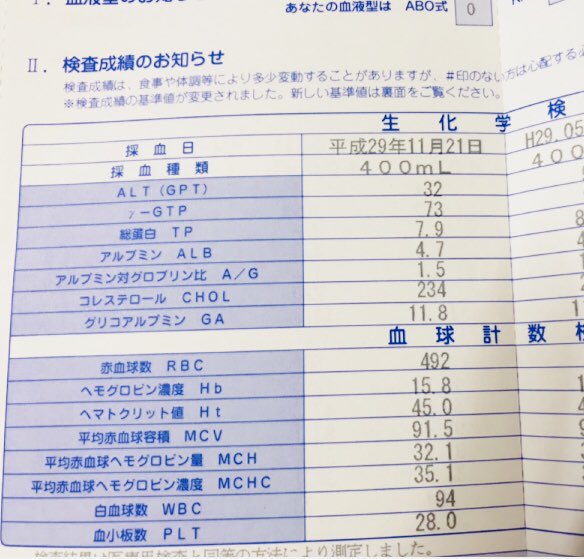 Ⅰ. 血液型のお知らせ
あなたの血液型は ABO式 O
Ⅱ. 検査成績のお知らせ
検査成績は、食事や体調等により多少変動することがありますが、#印のない方は心配する必
※検査成績の基準値が変更されました。新しい基準値は裏面をご覧ください。
生化学検
採血日 平成29年11月21日 H29.05
採血種類 400mL 400
ALT(GPT) 32
γ-GTP 73
総蛋白 TP 7.9 8
アルブミン ALB 4.7 4
アルブミン対グロブリン比 A/G 1.5 1
コレステロール CHOL 234 2
グリコアルブミン GA 11.8 1
血球計数検
赤血球数 RBC 492
ヘモグロビン濃度 Hb 15.8 1
ヘマトクリット値 Ht 45.0 4
平均赤血球容積 MCV 91.5 9
平均赤血球ヘモグロビン量 MCH 32.1 3
平均赤血球ヘモグロビン濃度 MCHC 35.1 3
白血球数 WBC 94
血小板数 PLT 28.0
検査結果は医療用検査と同等の方法により測定しました。